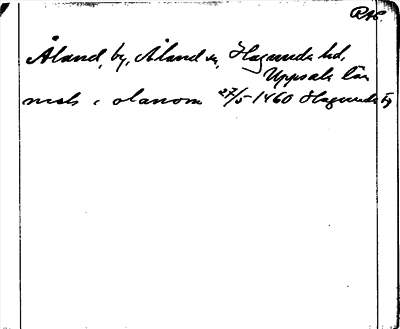 RAP.
Åland, by, Åland sn, Hagunda hd,
Uppsala län
i olanom 27/5 1460 Hagunda